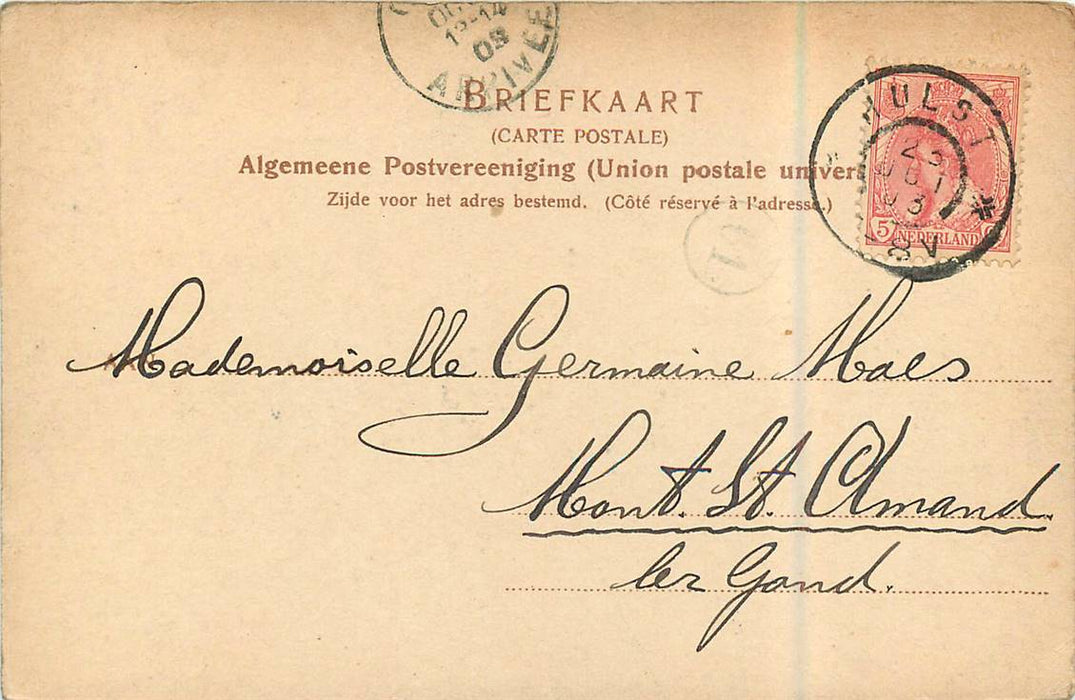 13-14
03
ARRIVÉE
BRIEFKAART
(CARTE POSTALE)
Algemeene Postvereeniging (Union postale univer
Zijde voor het adres bestemd. (Côté réservé à l'adresse.)
HULST
23
03
8 V
5 NEDERLAND
Mademoiselle Germaine Maes
Mont. St. Amand.
lez Gand.